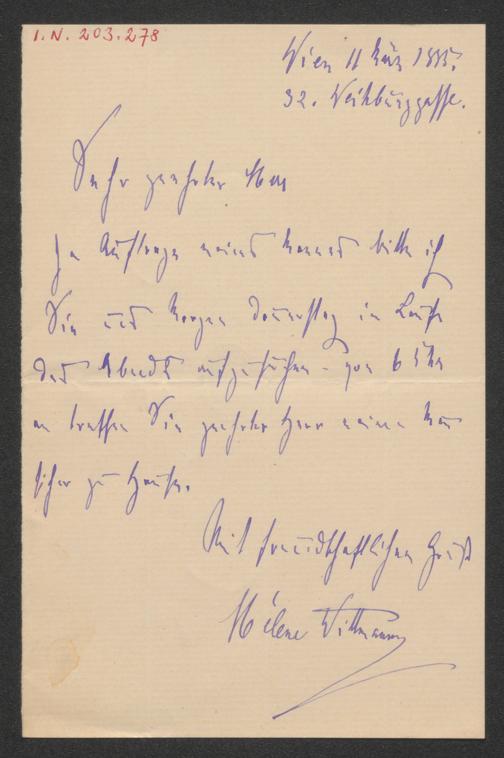 I.N. 203.278
Wien 11 März 1885.
32. Weihburggasse.
Sehr geehrter Herr
Im Auftrage meines Mannes bitte ich
Sie uns Morgen Donnerstag im Laufe
des Abends aufzusuchen - von 6 Uhr
an treffen Sie geehrter Herr meinen Mann
sicher zu Hause.
Mit freundschaftlichem Gruß
Hélene Wittmann